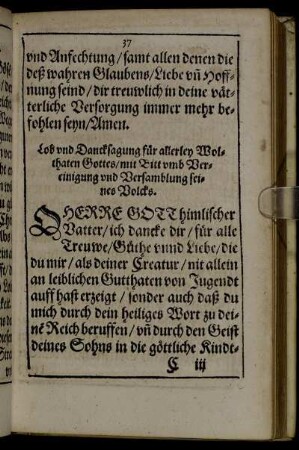 37
vnd Anfechtung / samt allen denen die
deß wahren Glaubens / Liebe vn̄ Hoff-
nung seind / dir treuwlich in deine vät-
terliche Versorgung immer mehr be-
fohlen seyn / Amen.
Lob vnd Dancksagung für allerley Wol-
thaten Gottes / mit Bitt vmb Ver-
einigung vnd Versamblung sei-
nes Volcks.
O HERRE GOTT himlischer
Vatter / ich dancke dir / für alle
Treuwe / Güthe vnnd Liebe / die
du mir / als deiner Creatur / nit allein
an leiblichen Gutthaten von Jugendt
auff hast erzeigt / sonder auch daß du
mich durch dein heiliges Wort zu dei-
nē Reich beruffen / vn̄ durch den Geist
deines Sohns in die göttliche Kindt-
C iij